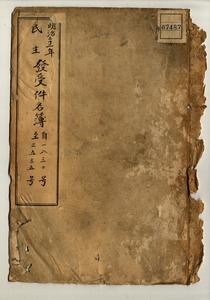 明治三年
民主發受件名簿
自一八三〇号
至二五三五号
67487